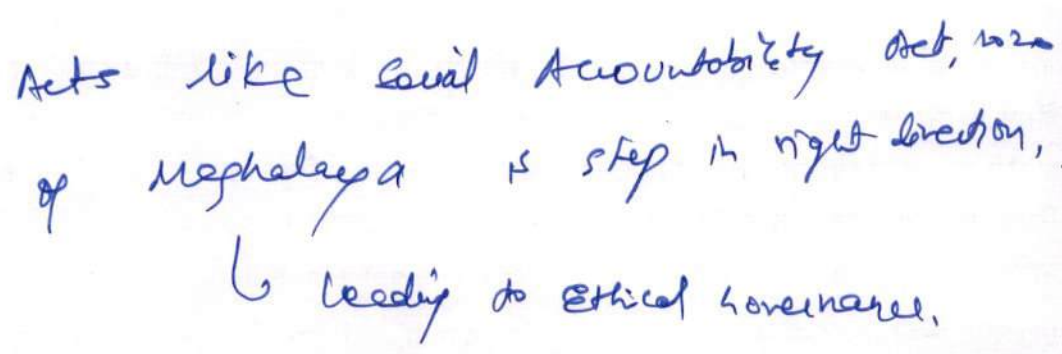 Acts like Social Accountability Act, 2020
of Meghalaya is step in right direction,
↳ leading to Ethical Governance.